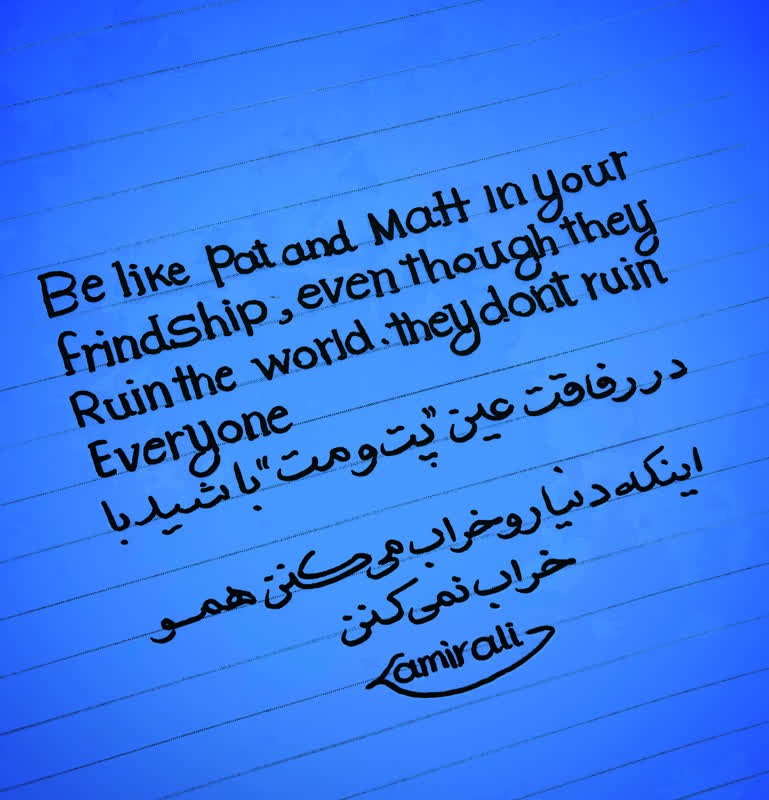 Be like Pat and Matt in your
frindship, even though they
Ruin the world. they dont ruin
Everyone
در رفاقت عین "پت و مت" باشید با
اینکه دنیا رو خراب می کنن همو
خراب نمی کنن
amirali